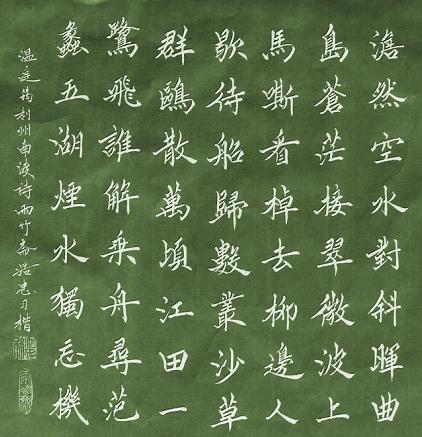 澹然空水對斜暉曲
島蒼茫接翠微波上
馬嘶看棹去柳邊人
歇待船歸數叢沙草
群鷗散萬頃江田一
鷺飛誰解乘舟尋范
蠡五湖煙水獨忘機
温庭筠利州南渡诗雨竹斋习楷